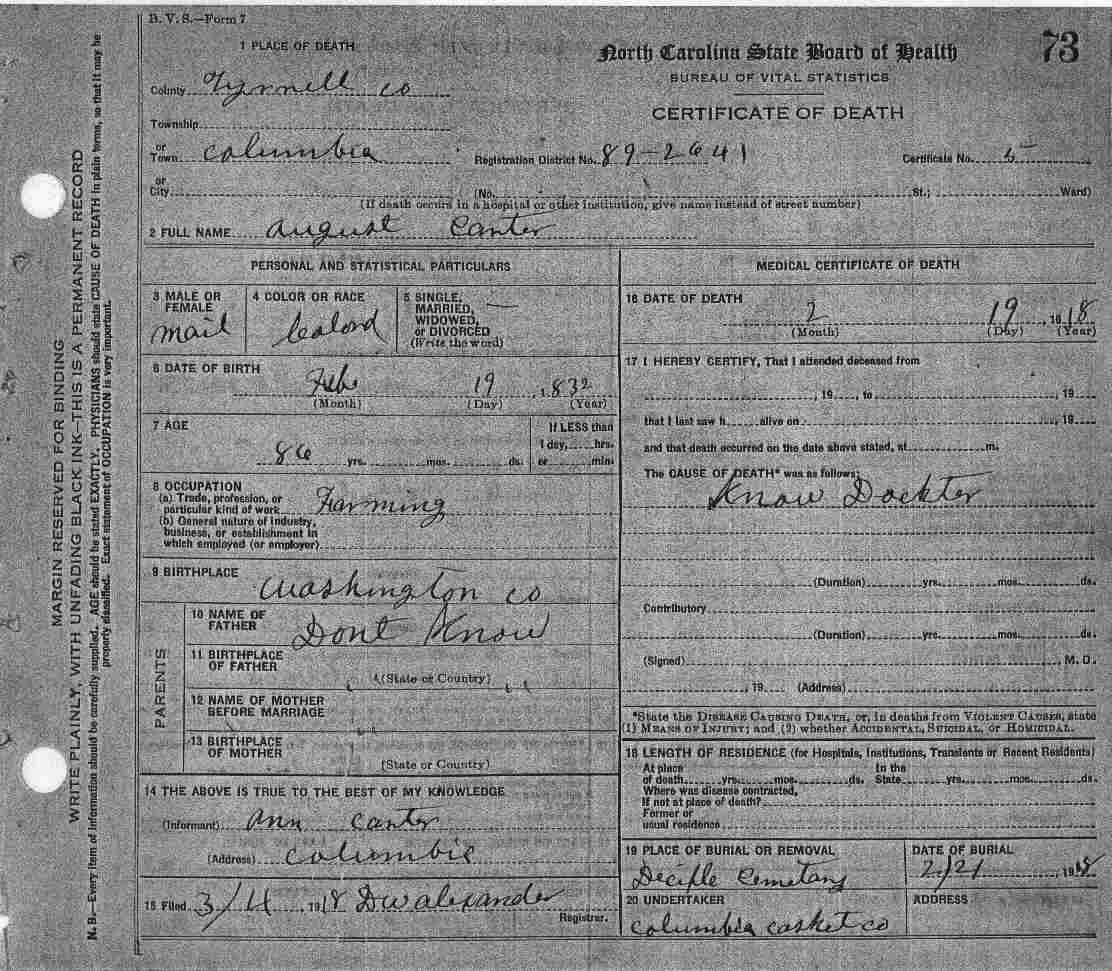 B. V. S.—Form 7
1 PLACE OF DEATH
North Carolina State Board of Health
73
BUREAU OF VITAL STATISTICS
CERTIFICATE OF DEATH
County Tyrrell co
Township
or Town columbia
Registration District No. 89-2641
Certificate No. 5
or City (No. St.; Ward)
(If death occurs in a hospital or other institution, give name instead of street number)
2 FULL NAME August Canter
PERSONAL AND STATISTICAL PARTICULARS
3 MALE OR FEMALE mail
4 COLOR OR RACE Calord
5 SINGLE, MARRIED, WIDOWED, or DIVORCED (Write the word)
6 DATE OF BIRTH Feb 19, 1832
(Month) (Day) (Year)
7 AGE 86 yrs. mos. ds.
If LESS than 1 day, hrs. or min.
8 OCCUPATION
(a) Trade, profession, or particular kind of work Farming
(b) General nature of industry, business, or establishment in which employed (or employer)
9 BIRTHPLACE Washington co
PARENTS
10 NAME OF FATHER Dont Know
11 BIRTHPLACE OF FATHER
(State or Country)
12 NAME OF MOTHER BEFORE MARRIAGE
13 BIRTHPLACE OF MOTHER
(State or Country)
14 THE ABOVE IS TRUE TO THE BEST OF MY KNOWLEDGE
(Informant) Ann canter
(Address) columbia
15 Filed 3/4 1918 DW alexander
Registrar.
MEDICAL CERTIFICATE OF DEATH
16 DATE OF DEATH
2 19, 1918
(Month) (Day) (Year)
17 I HEREBY CERTIFY, That I attended deceased from
, 19 , to , 19
that I last saw h alive on , 19
and that death occurred on the date above stated, at m.
The CAUSE OF DEATH* was as follows:
Know Dockter
(Duration) yrs. mos. ds.
Contributory
(Duration) yrs. mos. ds.
(Signed) , M. D.
, 19 (Address)
*State the DISEASE CAUSING DEATH, or, in deaths from VIOLENT CAUSES, state
(1) MEANS OF INJURY; and (2) whether ACCIDENTAL, SUICIDAL, OR HOMICIDAL.
18 LENGTH OF RESIDENCE (for Hospitals, Institutions, Transients or Recent Residents)
At place of death yrs. mos. ds. In the State yrs. mos. ds.
Where was disease contracted,
If not at place of death?
Former or usual residence
19 PLACE OF BURIAL OR REMOVAL
Deciple Cemetary
DATE OF BURIAL
2/21, 1918
20 UNDERTAKER
columbia casket co
ADDRESS
MARGIN RESERVED FOR BINDING
WRITE PLAINLY, WITH UNFADING BLACK INK—THIS IS A PERMANENT RECORD
N. B.—Every item of information should be carefully supplied. AGE should be stated EXACTLY. PHYSICIANS should state CAUSE OF DEATH in plain terms, so that it may be
properly classified. Exact statement of OCCUPATION is very important.